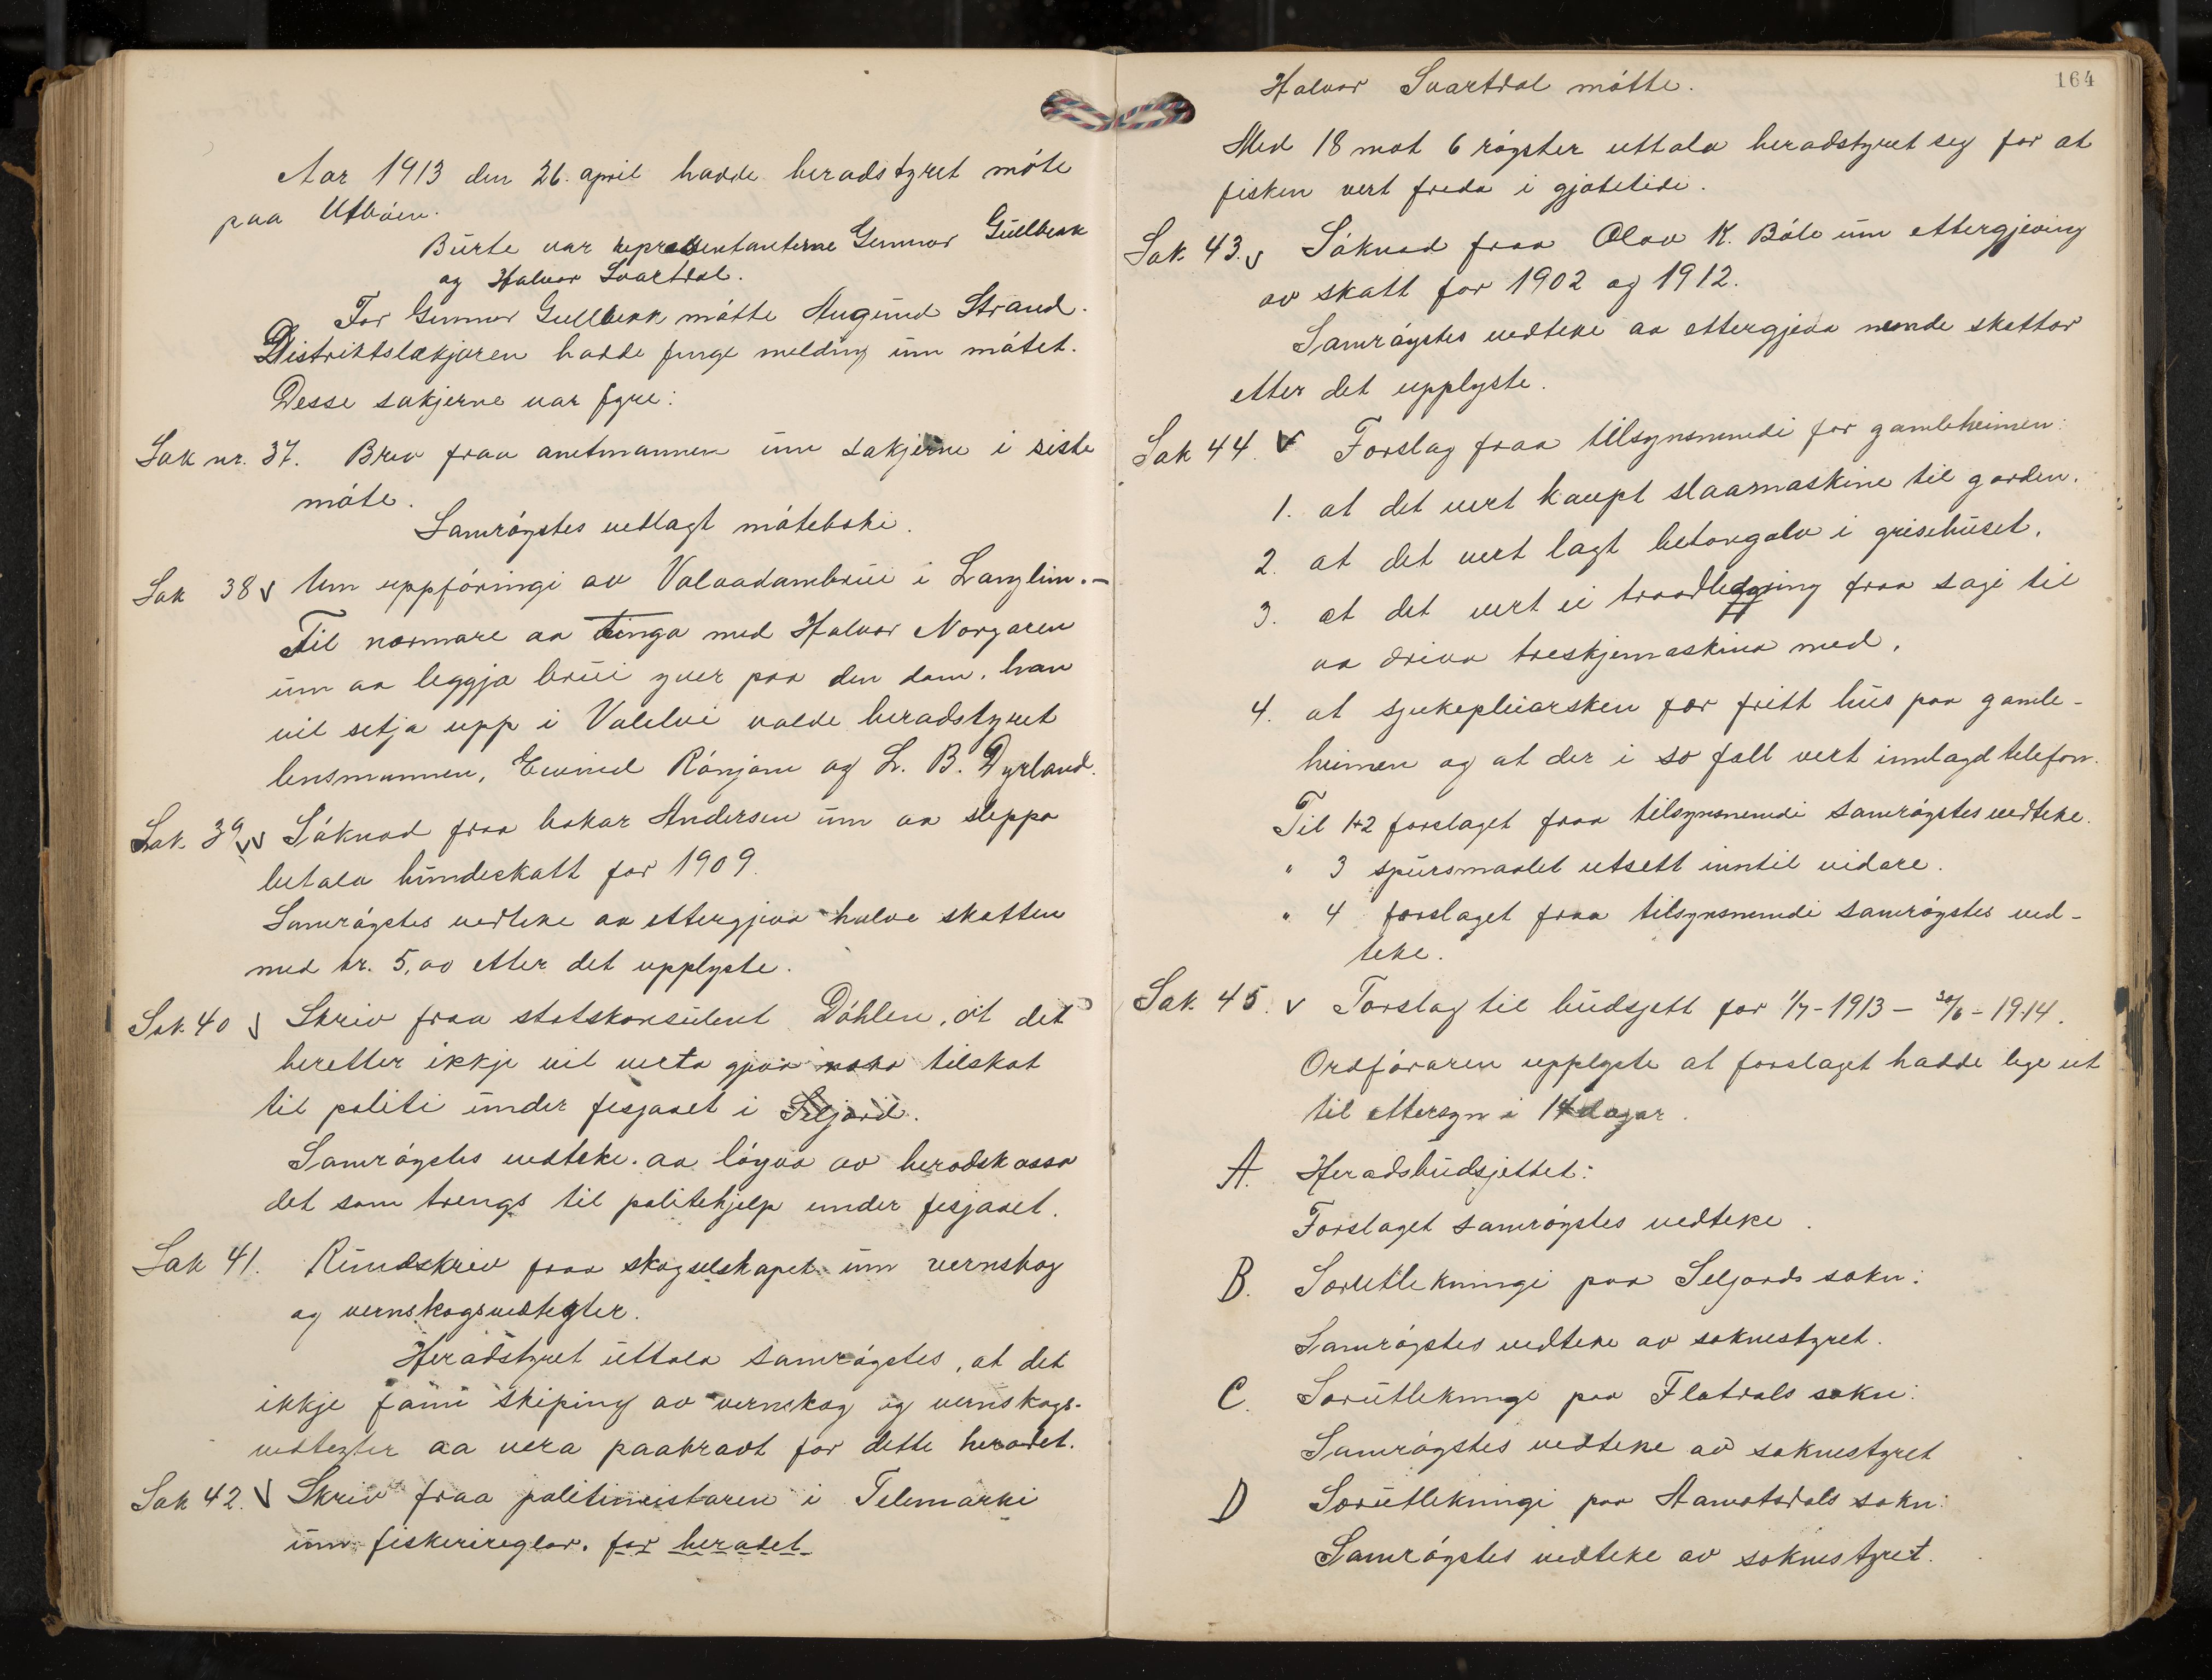 Aar 1913 den 26. april hadde heradstyret móte
paa Utbóen.
Burte var representanterne Gunnar Gullbekk
og Halvor Svartdal.
For Gunnar Gullbekk mótte Augund Strand.
Distriktslækjaren hadde funge melding um mótet.
Desse sakjerne var fyre:
Sak nr. 37. Brev fraa amtmannen um sakjerne i siste
móte.
Samróystes vedlagt móteboki.
Sak 38 v Um uppfóringi av Valaadambrui i Langlim.-
Til nærmare aa tinga med Halvor Norgaren
um aa leggja brui yver paa den dam, han
vil setja upp i Valelvi valde heradstyret
lensmannen, Eivind Rónjom og L. B. Dyrland.
Sak 39 vv Sóknad fraa bakar Andersen um aa sleppa
betala hundeskatt for 1909.
Samróystes vedteke aa ettergjeva halve skatten
med kr. 5,00 etter det upplyste.
Sak 40 v Skriv fraa statskonsulent Dóhlen, at det
heretter ikkje vil verta gjeve noko tilskot
til politi under fesjaaet i Seljord.
Samróystes vedteke aa lóyva av heradskassa
det som trengs til politihjelp under fesjaaet.
Sak 41. Rundskriv fraa skogselskapet um vernskog
og vernskogsvedtegter.
Heradstyret uttala samróystes, at det
ikkje fann skiping av vernskog og vernskogs-
vedtegter aa vera paakravt for dette heradet.
Sak 42. v Skriv fraa politimeistaren i Telemarki
um fiskerireglar. for heradet
164
Halvor Svartdal mótte.
Med 18 mot 6 róyster uttala heradstyret seg for at
fisken vert freda i gjótetidi.
Sak 43. v Sóknad fraa Olav K. Bóle um ettergjeving
av skatt for 1902 og 1912.
Samróystes vedteke aa ettergjeva nemde skattar
etter det upplyste.
Sak 44. v Forslag fraa tilsynsnemndi for gamleheimen:
1. at det vert kaupt slaamaskine til garden.
2. at det vert lagt betongolv i grisehuset.
3. at det vert ei traadleggjing fraa sagi til
aa driva treskjemaskina med.
4. at sjukepleiarsken fær fritt hus paa gamle-
heimen og at der i so fall vert innlagd telefon.
Til 1+2 forslaget fraa tilsynsnemndi samróystes vedteke.
" 3 spursmaalet utsett inntil vidare.
" 4 forslaget fraa tilsynsnemndi samróystes ved-
teke.
Sak. 45. v Forslag til budsjett for 1/7-1913 - 30/6-1914.
Ordfóraren upplyste at forslaget hadde lege ut
til ettersyn i 14 dagar.
A. Heradsbudsjettet:
Forslaget samróystes vedteke.
B. Særutlekningi paa Seljords sokn:
Samróystes vedteke av soknestyret.
C. Særutlekningi paa Flatdals sokn:
Samróystes vedteke av soknestyret
D Særutlekningi paa Aamotsdals sokn:
Samróystes vedteke av soknestyret.